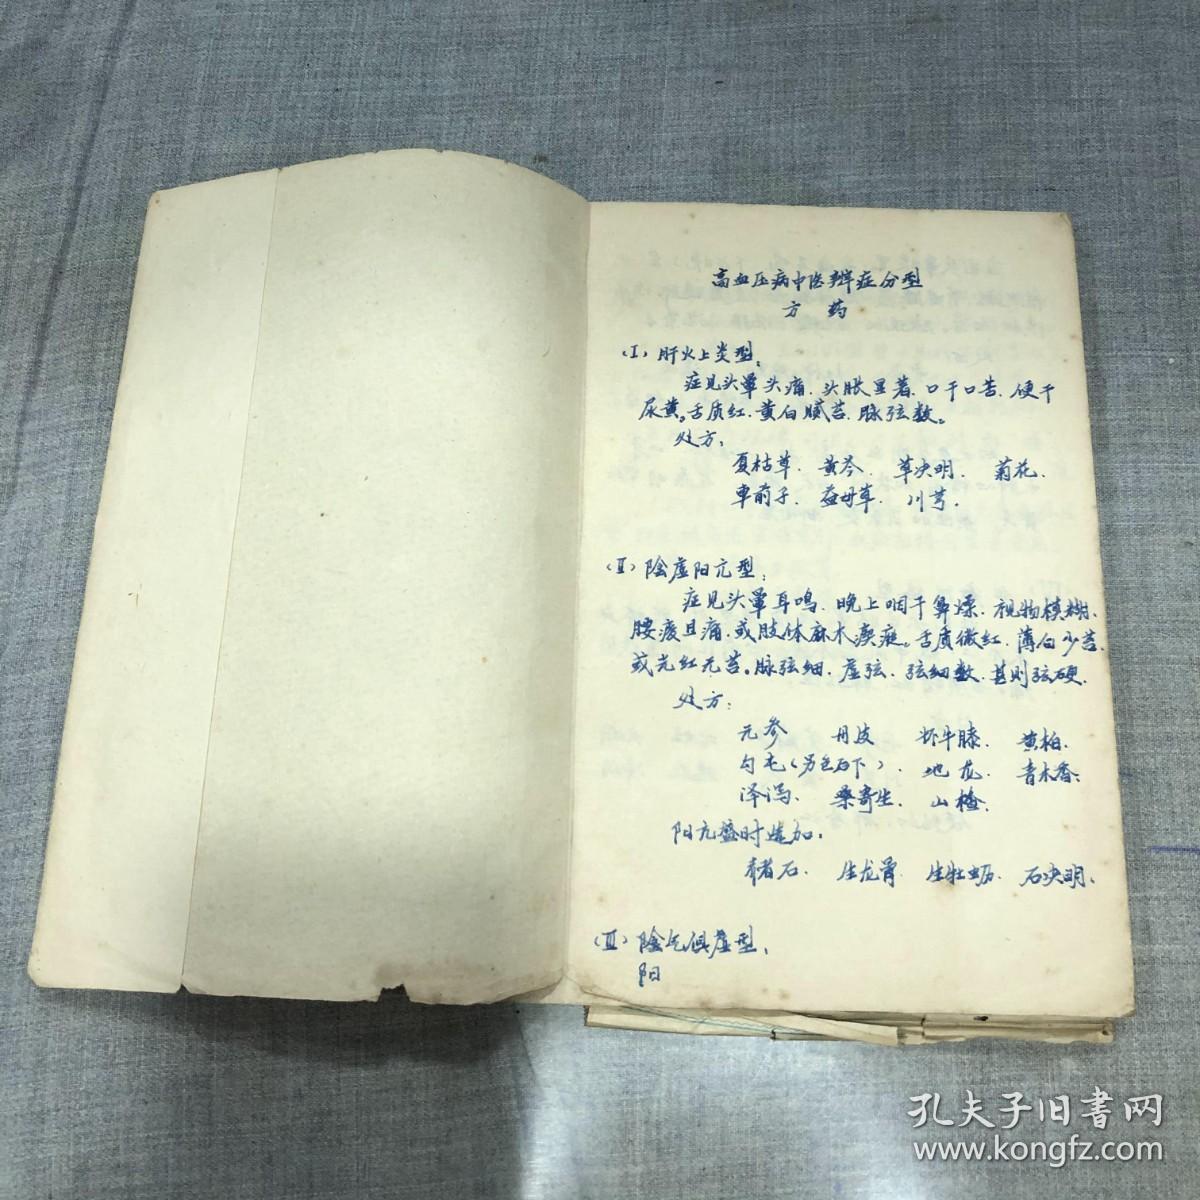 高血压病中医辨症分型
方药
(I) 肝火上炎型:
症见头晕头痛.头胀显著.口干口苦.便干
尿黄。舌质红.黄白腻苔.脉弦数。
处方:
夏枯草.黄芩.草决明.菊花.
車前子.益母草.川芎.
(II) 陰虚阳亢型:
症见头晕耳鸣.晚上咽干鼻燥.视物模糊.
腰痠且痛.或肢体麻木.舌质微红.薄白少苔.
或光红无苔。脉弦细.虚弦.弦细数.甚则弦硬.
处方:
元参.丹皮.怀牛膝.黄柏.
勾屯(后下).地龙.青木香.
泽泻.桑寄生.山楂.
阳亢盛时选加:
赭石.生龙骨.生牡蛎.石决明.
(III) 陰气俱虚型:
阳
孔夫子旧書网
www.kongfz.com